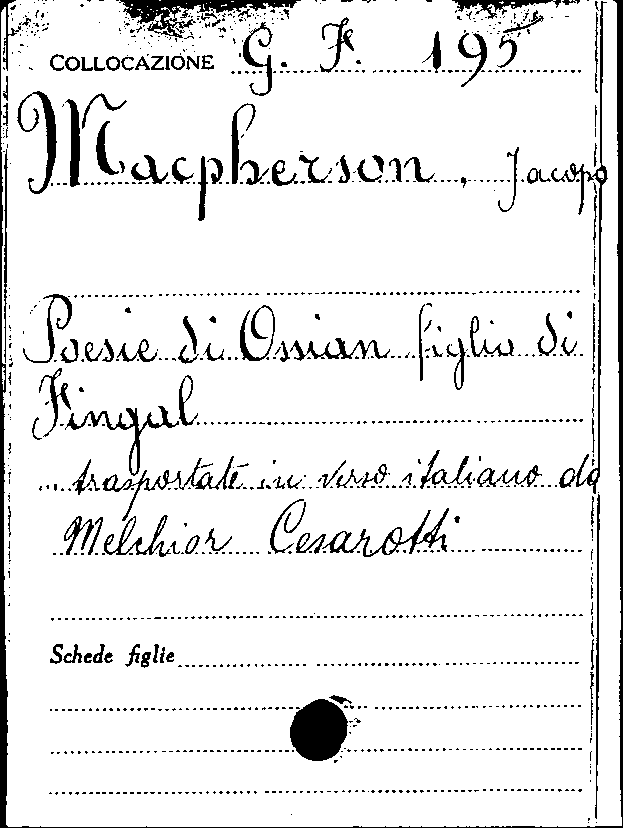 COLLOCAZIONE G. F. 195
Macpherson, Jacopo
Poesie di Ossian figlio di
Fingal
... trasportate in verso italiano da
Melchior Cesarotti
Schede figlie